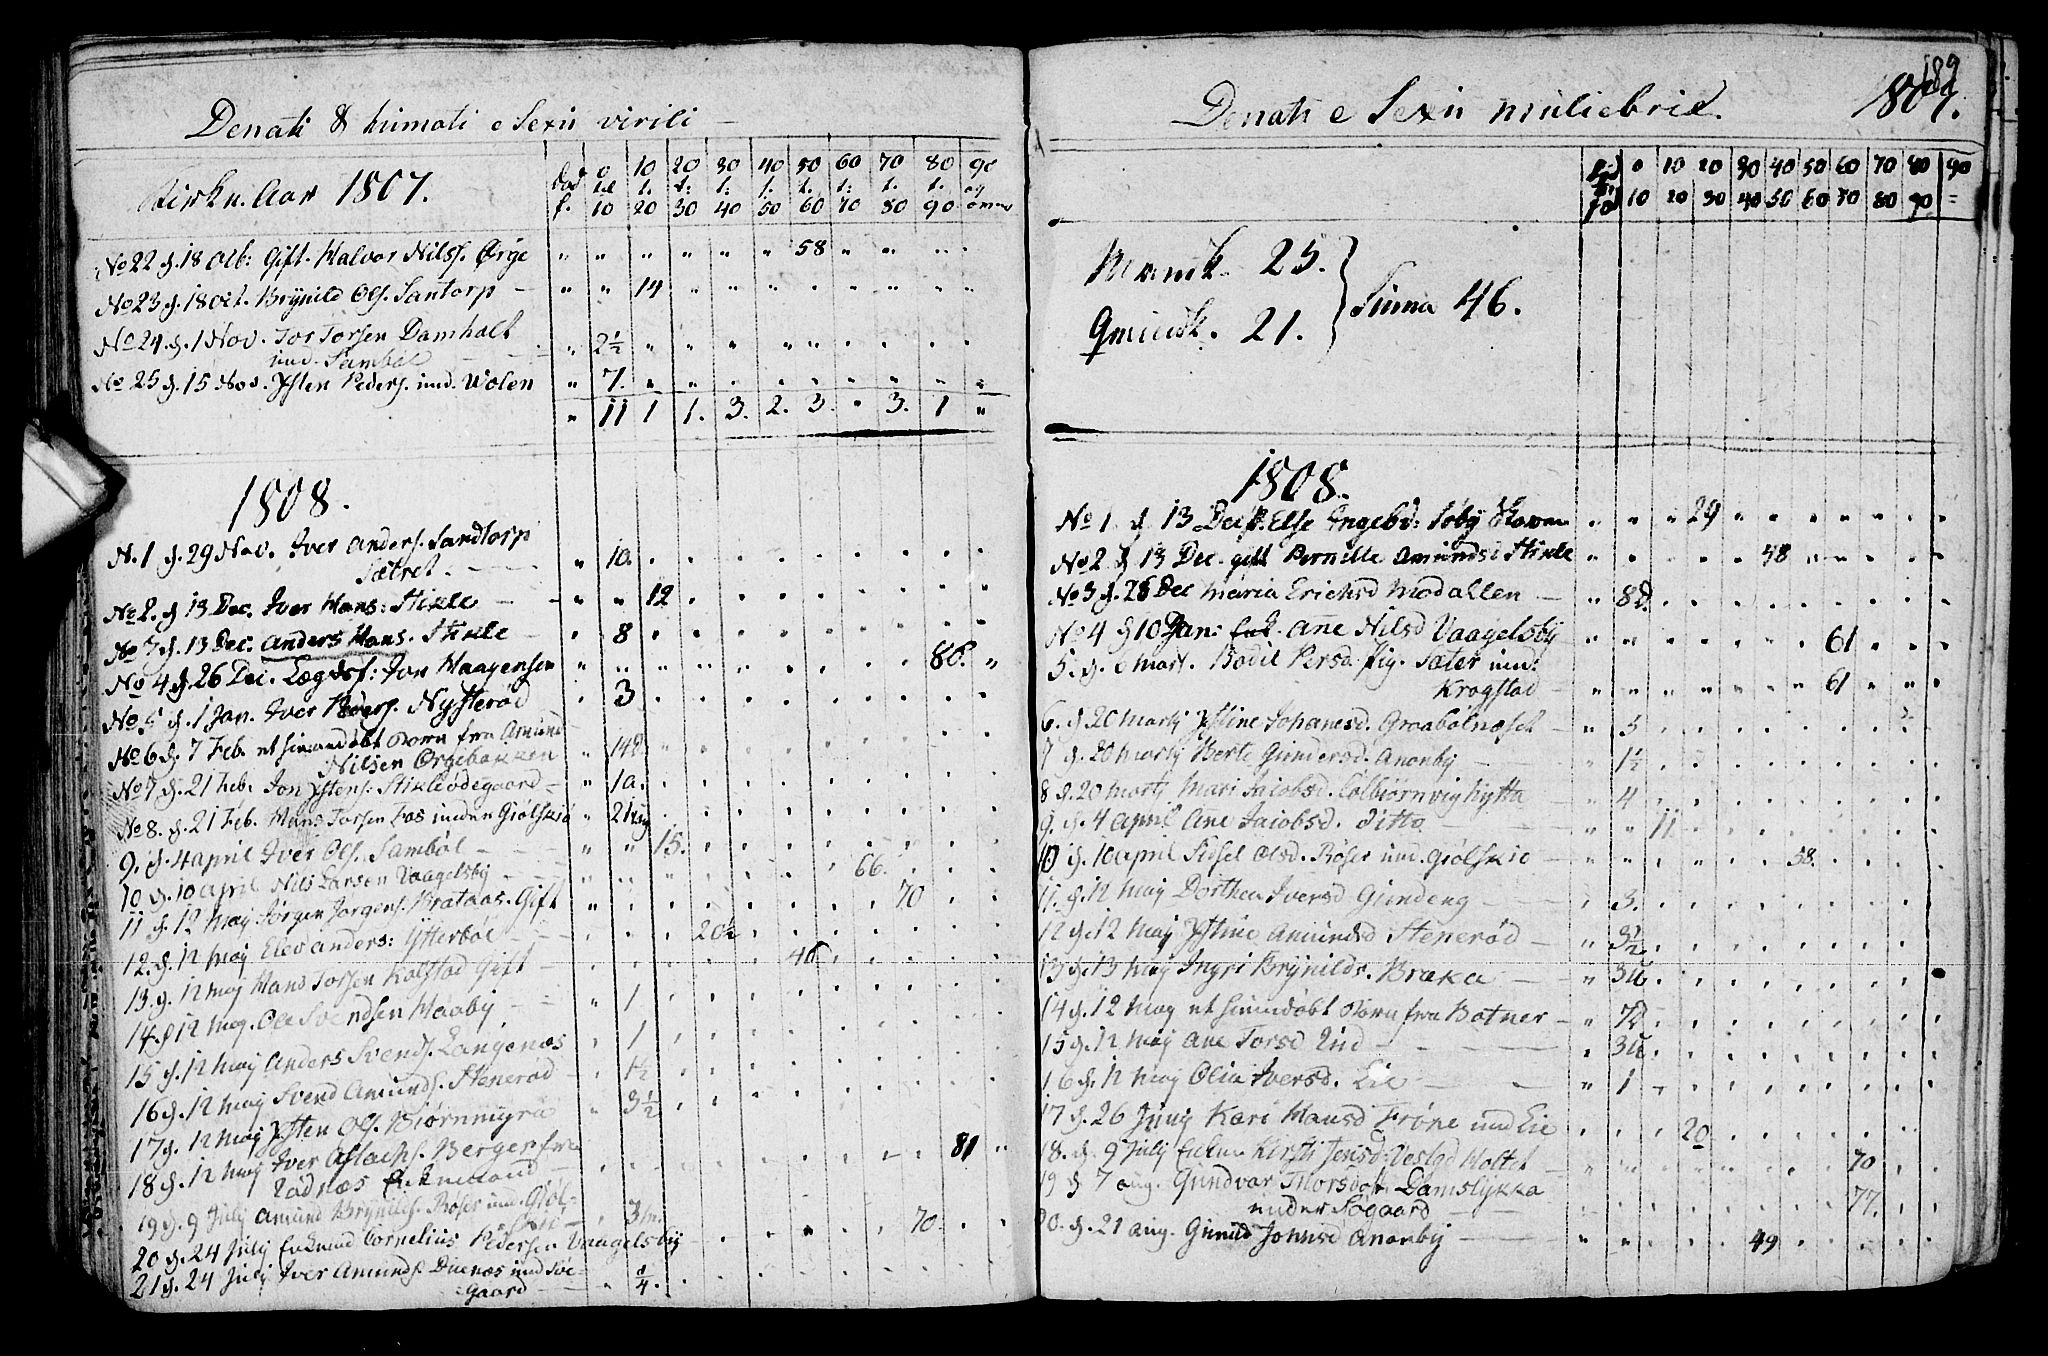 Denati & humati e Sexu virili
Kirkn. Aar 1807.
død f. 0 til 10 10 t. 20 20 t. 30 30 t. 40 40 t. 50 50 t. 60 60 t. 70 70 t. 80 80 t. 90 90 og
No 22 d. 18 Octb: Gift. Halvor Nilss. Ørge 58
No 23 d. 18 Oct. Brynild Ols. Santorp 14
No 24. d. 1 Nov. Tor Torsen Damholt 2½
und. Sambøl
No 25 d. 15 Nov. Ysten Peders. und. Wolen 7.
11 1 1. 3. 2. 3. 3. 1
1808.
N. 1 d. 29 Nov. Iver Anders. Sandtorp
Sætret. 10.
No 2. d 13 Dec. Iver Hans: Stikle 12
No 3 d. 13 Dec. Anders Hans. Stikle 8
No 4 d. 26 Dec. Lægdsf: Jon Haagensen 86.
No 5 d. 1 Jan. Iver Peders. Nysterød 3
No 6 d. 7 Feb. et hiemdøbt Barn fra Amund
Nilsen Ørgebakken 14d
No 7 d. 21 Feb. Jon Ystens: Stikleødegaard 1a.
No 8. d. 21 Feb. Hans Torsen Fos under Giølskiø 21
9. d. 4 April Iver Ols. Sambøl 15.
10 d. 10 April Nils Larsen Vaagelsby 66.
11 d. 12 May Jørgen Jørgens. Brataas. Gift 70
12. d. 12 May Elev Anders: Ytterbøl 20½
13. d. 12 May Hans Torsen Kolstad Gift 46
14. d 12 May. Ole Svendsen Haaby 1
15 d. 12 May Anders Svends. Langenæs 1
16 d. 12 May Svend Amunds. Stenerød 1½
17 d. 12 May Ysten Ols. Biørnmyra 3½
18 d. 12 May Iver Aslachs. Berger fra
Rødnæs Enkemand 81
19 d. 9 July Amund Brynilds. Røser und. Giøl-
skiø 3m.
20 d. 24 July Enkemd Cornelius Pedersen Vaagelsby 70.
21 d. 24 July Iver Amunds. Duenæs und Sve-
gaard ¼.
189
Denati e Sexu muliebrie. 1807.
0 10 20 30 40 50 60 70 80 90
10 20 30 40 50 60 70 80 90 =
Mandk. 25.
Qvindk. 21.
Suma 46.
1808.
No 1 d 13 Dec. Else Engebr: Søby 29
No 2 d 13 Dec. gift Pernille Amundsd Stikle 48
No 3 d. 26 Dec Maria Erichsd Modallen 8d.
No 4 d 10 Jan: Enk. Ane Nilsd Vaagelsby 61
5. d. 6 Mart. Bodil Persd. Pig. Sæter und:
Krogstad 61
6. d. 20 Martj Ystine Johanesd. Graabølnæset 5
7 d. 20 Martj Berte Gundersd. Anonby 1½
8 d. 20 Martj Mari Jacobsd. Kolbiørnvighytta 4
9. d. 4 April Ane Jacobsd. Ditto 11
10 d. 10 April Sidsel Olsd. Røser und. Giølskiø 58.
11. d. 12 May Dorthea Iversd Gundeng 3.
12 d. 12 May Ystine Amundsd Stenerød 3½
13 d. 13 May Ingri Brynilds. Braka 3U
14 d. 12 May et hiemdøbt Barn fra Botner 7d
15 d. 12 May Ane Torsd Lund 3U.
16 d. 12 May Olia Iversd. Lie 1
17 d. 26 Juny Kari Hansd Frøne und Lie 20
18. d. 9 July Enken Kirsti Jensd: Vestgd Holtet 70
19 d 7 Aug. Gundvor Thorsdatr Damslykka
under Søgaard 77.
20. d. 21 Aug. Gunild Johnsd Anonby 49